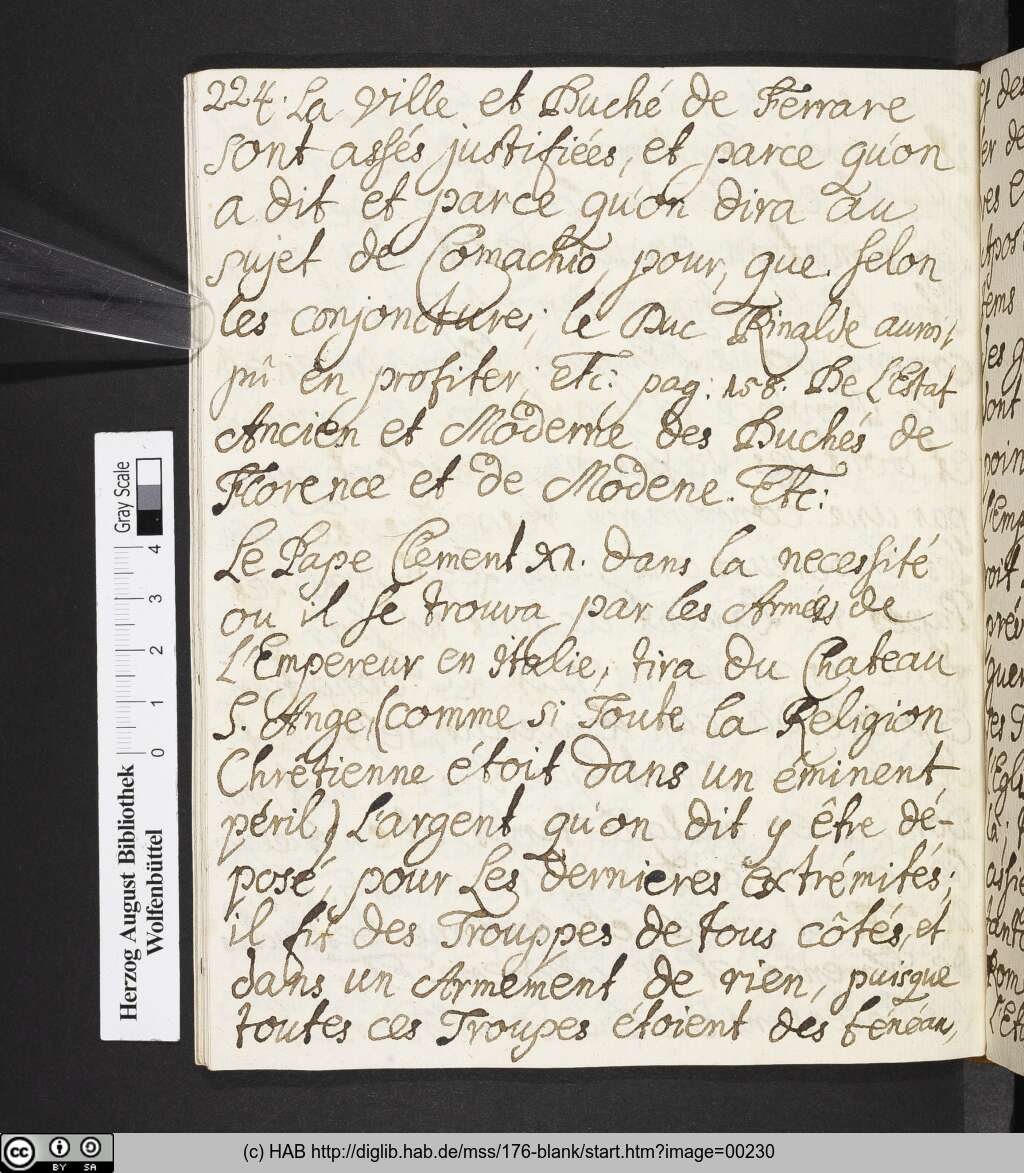 224. La Ville et Duché de Ferrare
sont assés justifiées, et parce qu'on
a dit et parce qu'on dira au
sujet de Comachio, pour, que selon
les conjonctures, le Duc Rinalde auroit
pû en profiter, Etc: pag: 158. De L'Estat
Ancien et Moderne des Duchés de
Florence et de Modene. Etc:
Le Pape Clement XI. dans la necessité
ou il se trouva par les Armées de
L'Empereur en Italie, tira du Chateau
S. Ange, (comme si Toute la Religion
Chrétienne étoit dans un éminent
péril) L'argent qu'on dit y être dé-
posé, pour Les dernieres extrémités;
il fit des Trouppes de tous côtés, et
dans un Armement de rien, puisque
toutes ces Troupes étoient des fénéan,
Herzog August Bibliothek
Wolfenbüttel
0 1 2 3 4
Gray Scale
cc BY SA
(c) HAB http://diglib.hab.de/mss/176-blank/start.htm?image=00230